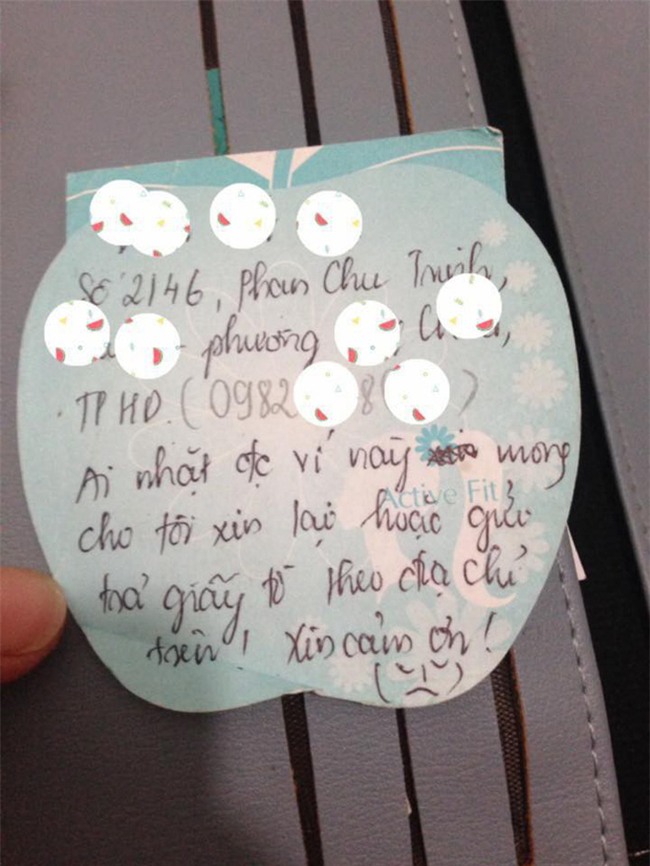 Số 2146, Phan Chu Trinh,
phường
TP HD. (0982 8 )
Ai nhặt đc ví này mong
cho tôi xin lại hoặc gửi
trả giấy tờ theo địa chỉ
trên! Xin cảm ơn!
Active Fit